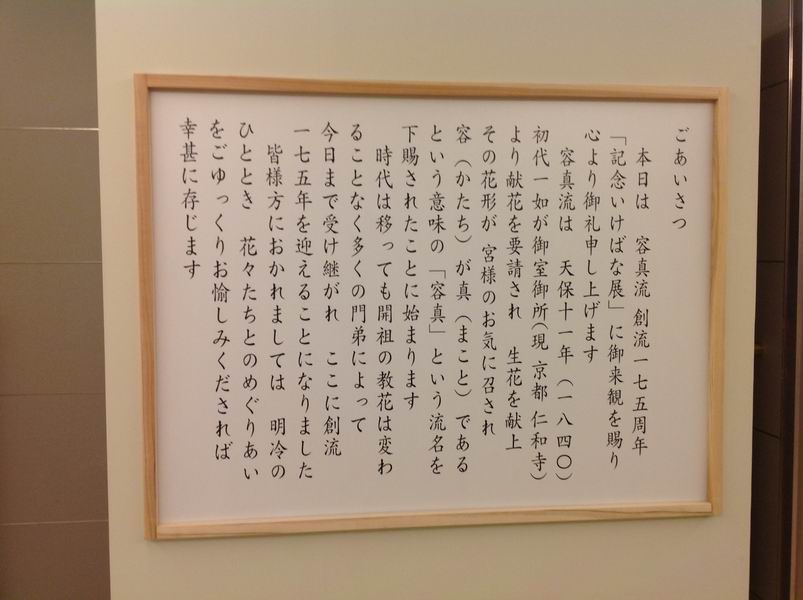 ごあいさつ
本日は 容真流 創流一七五周年
「記念いけばな展」に御来観を賜り
心より御礼申し上げます
容真流は 天保十一年（一八四〇）
初代一如が御室御所（現 京都 仁和寺）
より献花を要請され 生花を献上
その花形が 宮様のお気に召され
容（かたち）が真（まこと）である
という意味の「容真」という流名を
下賜されたことに始まります
時代は移っても開祖の教花は変わ
ることなく多くの門弟によって
今日まで受け継がれ ここに創流
一七五年を迎えることになりました
皆様方におかれましては 明冷の
ひととき 花々たちとのめぐりあい
をごゆっくりお愉しみくだされば
幸甚に存じます